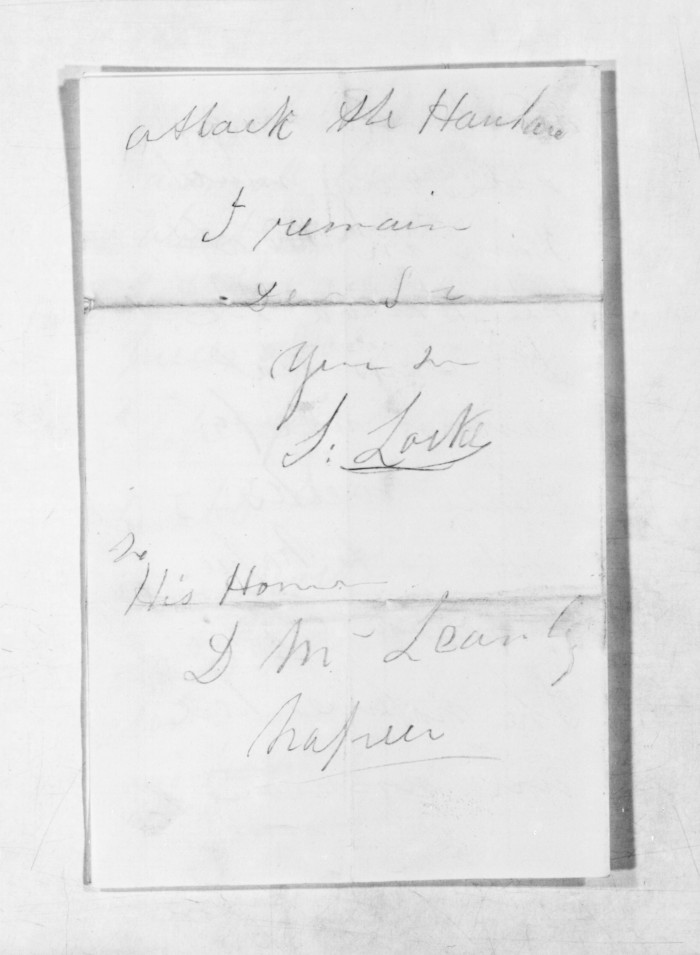 attack the Hauhau
I remain
Dear Sir
Your
S: Locke
To
His Honor
D McLean Esq
Napier